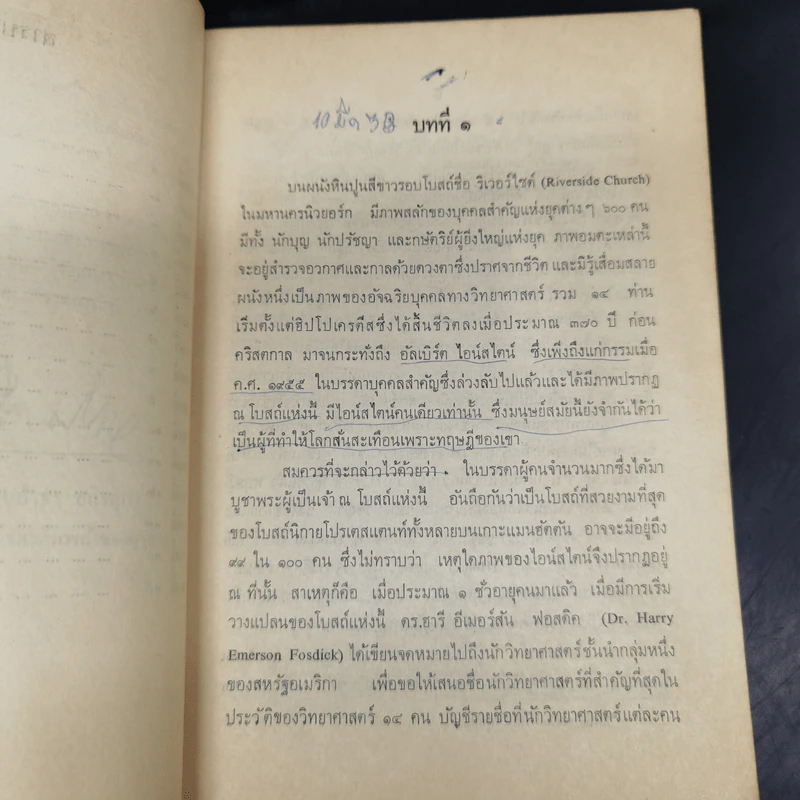 สารบ
10 มีค 38 บทที่ ๑
บนผนังหินปูนสีขาวรอบโบสถ์ชื่อ ริเวอร์ไซด์ (Riverside Church)
ในมหานครนิวยอร์ก มีภาพสลักของบุคคลสำคัญแห่งยุคต่างๆ ๖๐๐ คน
มีทั้ง นักบุญ นักปรัชญา และกษัตริย์ผู้ยิ่งใหญ่แห่งยุค ภาพอมตะเหล่านี้
จะอยู่สำรวจอวกาศและกาลด้วยดวงตาซึ่งปราศจากชีวิต และมิรู้เสื่อมสลาย
ผนังหนึ่งเป็นภาพของอัจฉริยบุคคลทางวิทยาศาสตร์ รวม ๑๔ ท่าน
เริ่มตั้งแต่ฮิปโปเครตีสซึ่งได้สิ้นชีวิตลงเมื่อประมาณ ๓๗๐ ปี ก่อน
คริสตกาล มาจนกระทั่งถึง อัลเบิร์ต ไอน์สไตน์ ซึ่งเพิ่งถึงแก่กรรมเมื่อ
ค.ศ. ๑๙๕๕ ในบรรดาบุคคลสำคัญซึ่งล่วงลับไปแล้วและได้มีภาพปรากฏ
ณ โบสถ์แห่งนี้ มีไอน์สไตน์คนเดียวเท่านั้น ซึ่งมนุษย์สมัยนี้ยังจำกันได้ว่า
เป็นผู้ที่ทำให้โลกสั่นสะเทือนเพราะทฤษฎีของเขา
สมควรที่จะกล่าวไว้ด้วยว่า ในบรรดาผู้คนจำนวนมากซึ่งได้มา
บูชาพระผู้เป็นเจ้า ณ โบสถ์แห่งนี้ อันถือกันว่าเป็นโบสถ์ที่สวยงามที่สุด
ของโบสถ์นิกายโปรเตสแตนท์ทั้งหลายบนเกาะแมนฮัตตัน อาจจะมีอยู่ถึง
๙๙ ใน ๑๐๐ คน ซึ่งไม่ทราบว่า เหตุใดภาพของไอน์สไตน์จึงปรากฏอยู่
ณ ที่นั้น สาเหตุก็คือ เมื่อประมาณ ๑ ชั่วอายุคนมาแล้ว เมื่อมีการเริ่ม
วางแปลนของโบสถ์แห่งนี้ ดร.ฮารี อีเมอร์สัน ฟอสดิค (Dr. Harry
Emerson Fosdick) ได้เขียนจดหมายไปถึงนักวิทยาศาสตร์ชั้นนำกลุ่มหนึ่ง
ของสหรัฐอเมริกา เพื่อขอให้เสนอชื่อนักวิทยาศาสตร์ที่สำคัญที่สุดใน
ประวัติของวิทยาศาสตร์ ๑๔ คน บัญชีรายชื่อที่นักวิทยาศาสตร์แต่ละคน